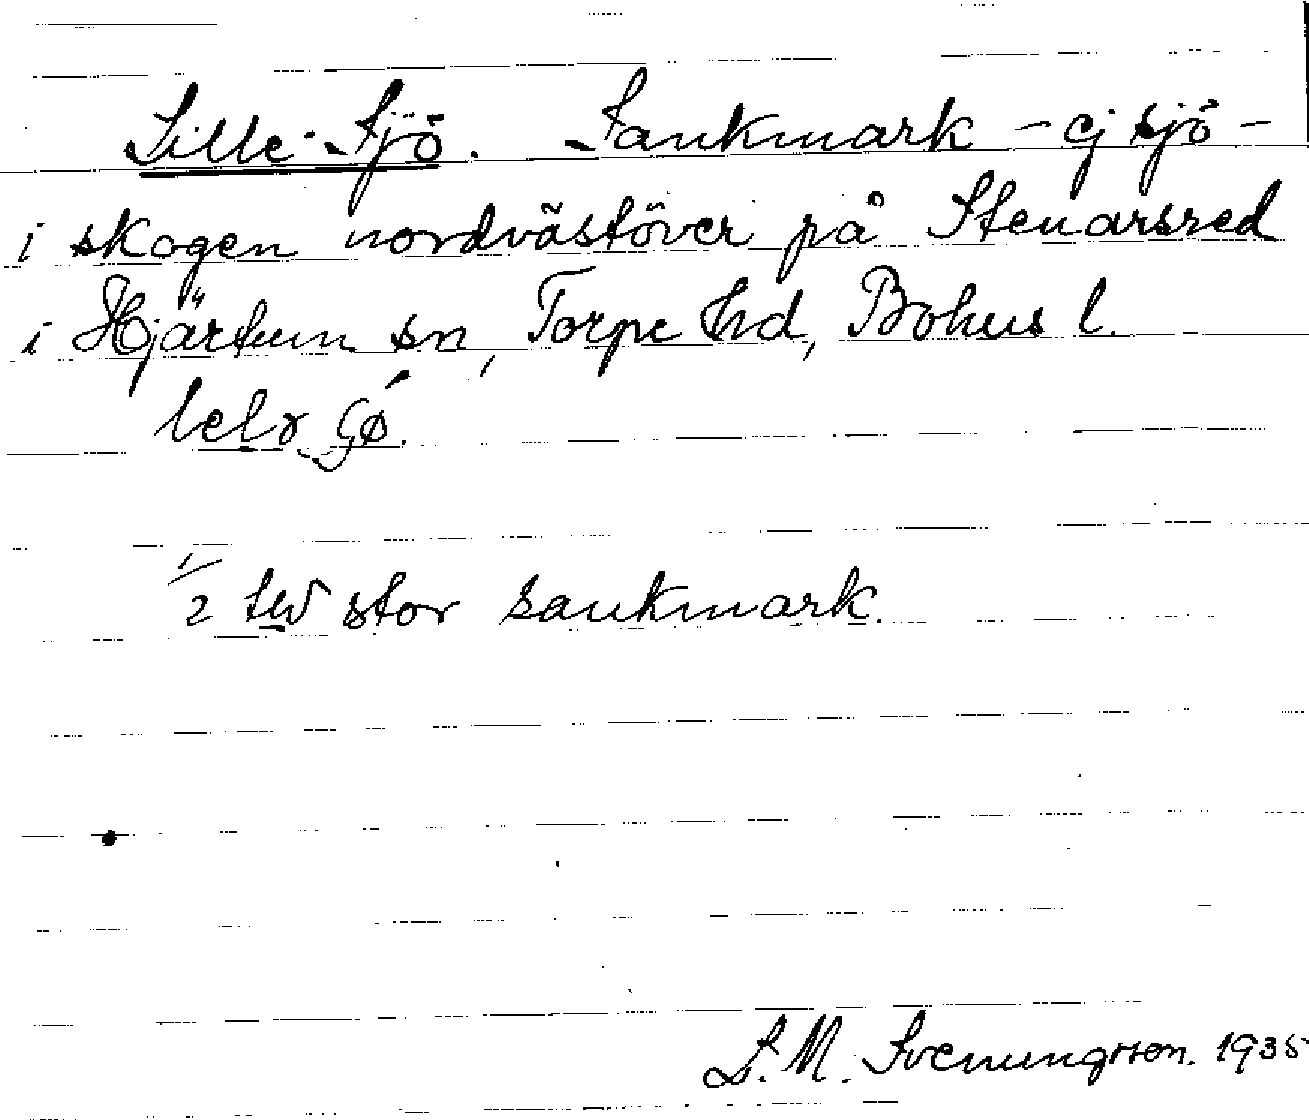 Lille-Sjö. Sankmark - ej sjö -
i skogen nordvästöver på Stenarsred
i Hjärtum sn, Torpe hd, Bohus l.
½ stor sankmark.
S. M. Svenungsson. 1935